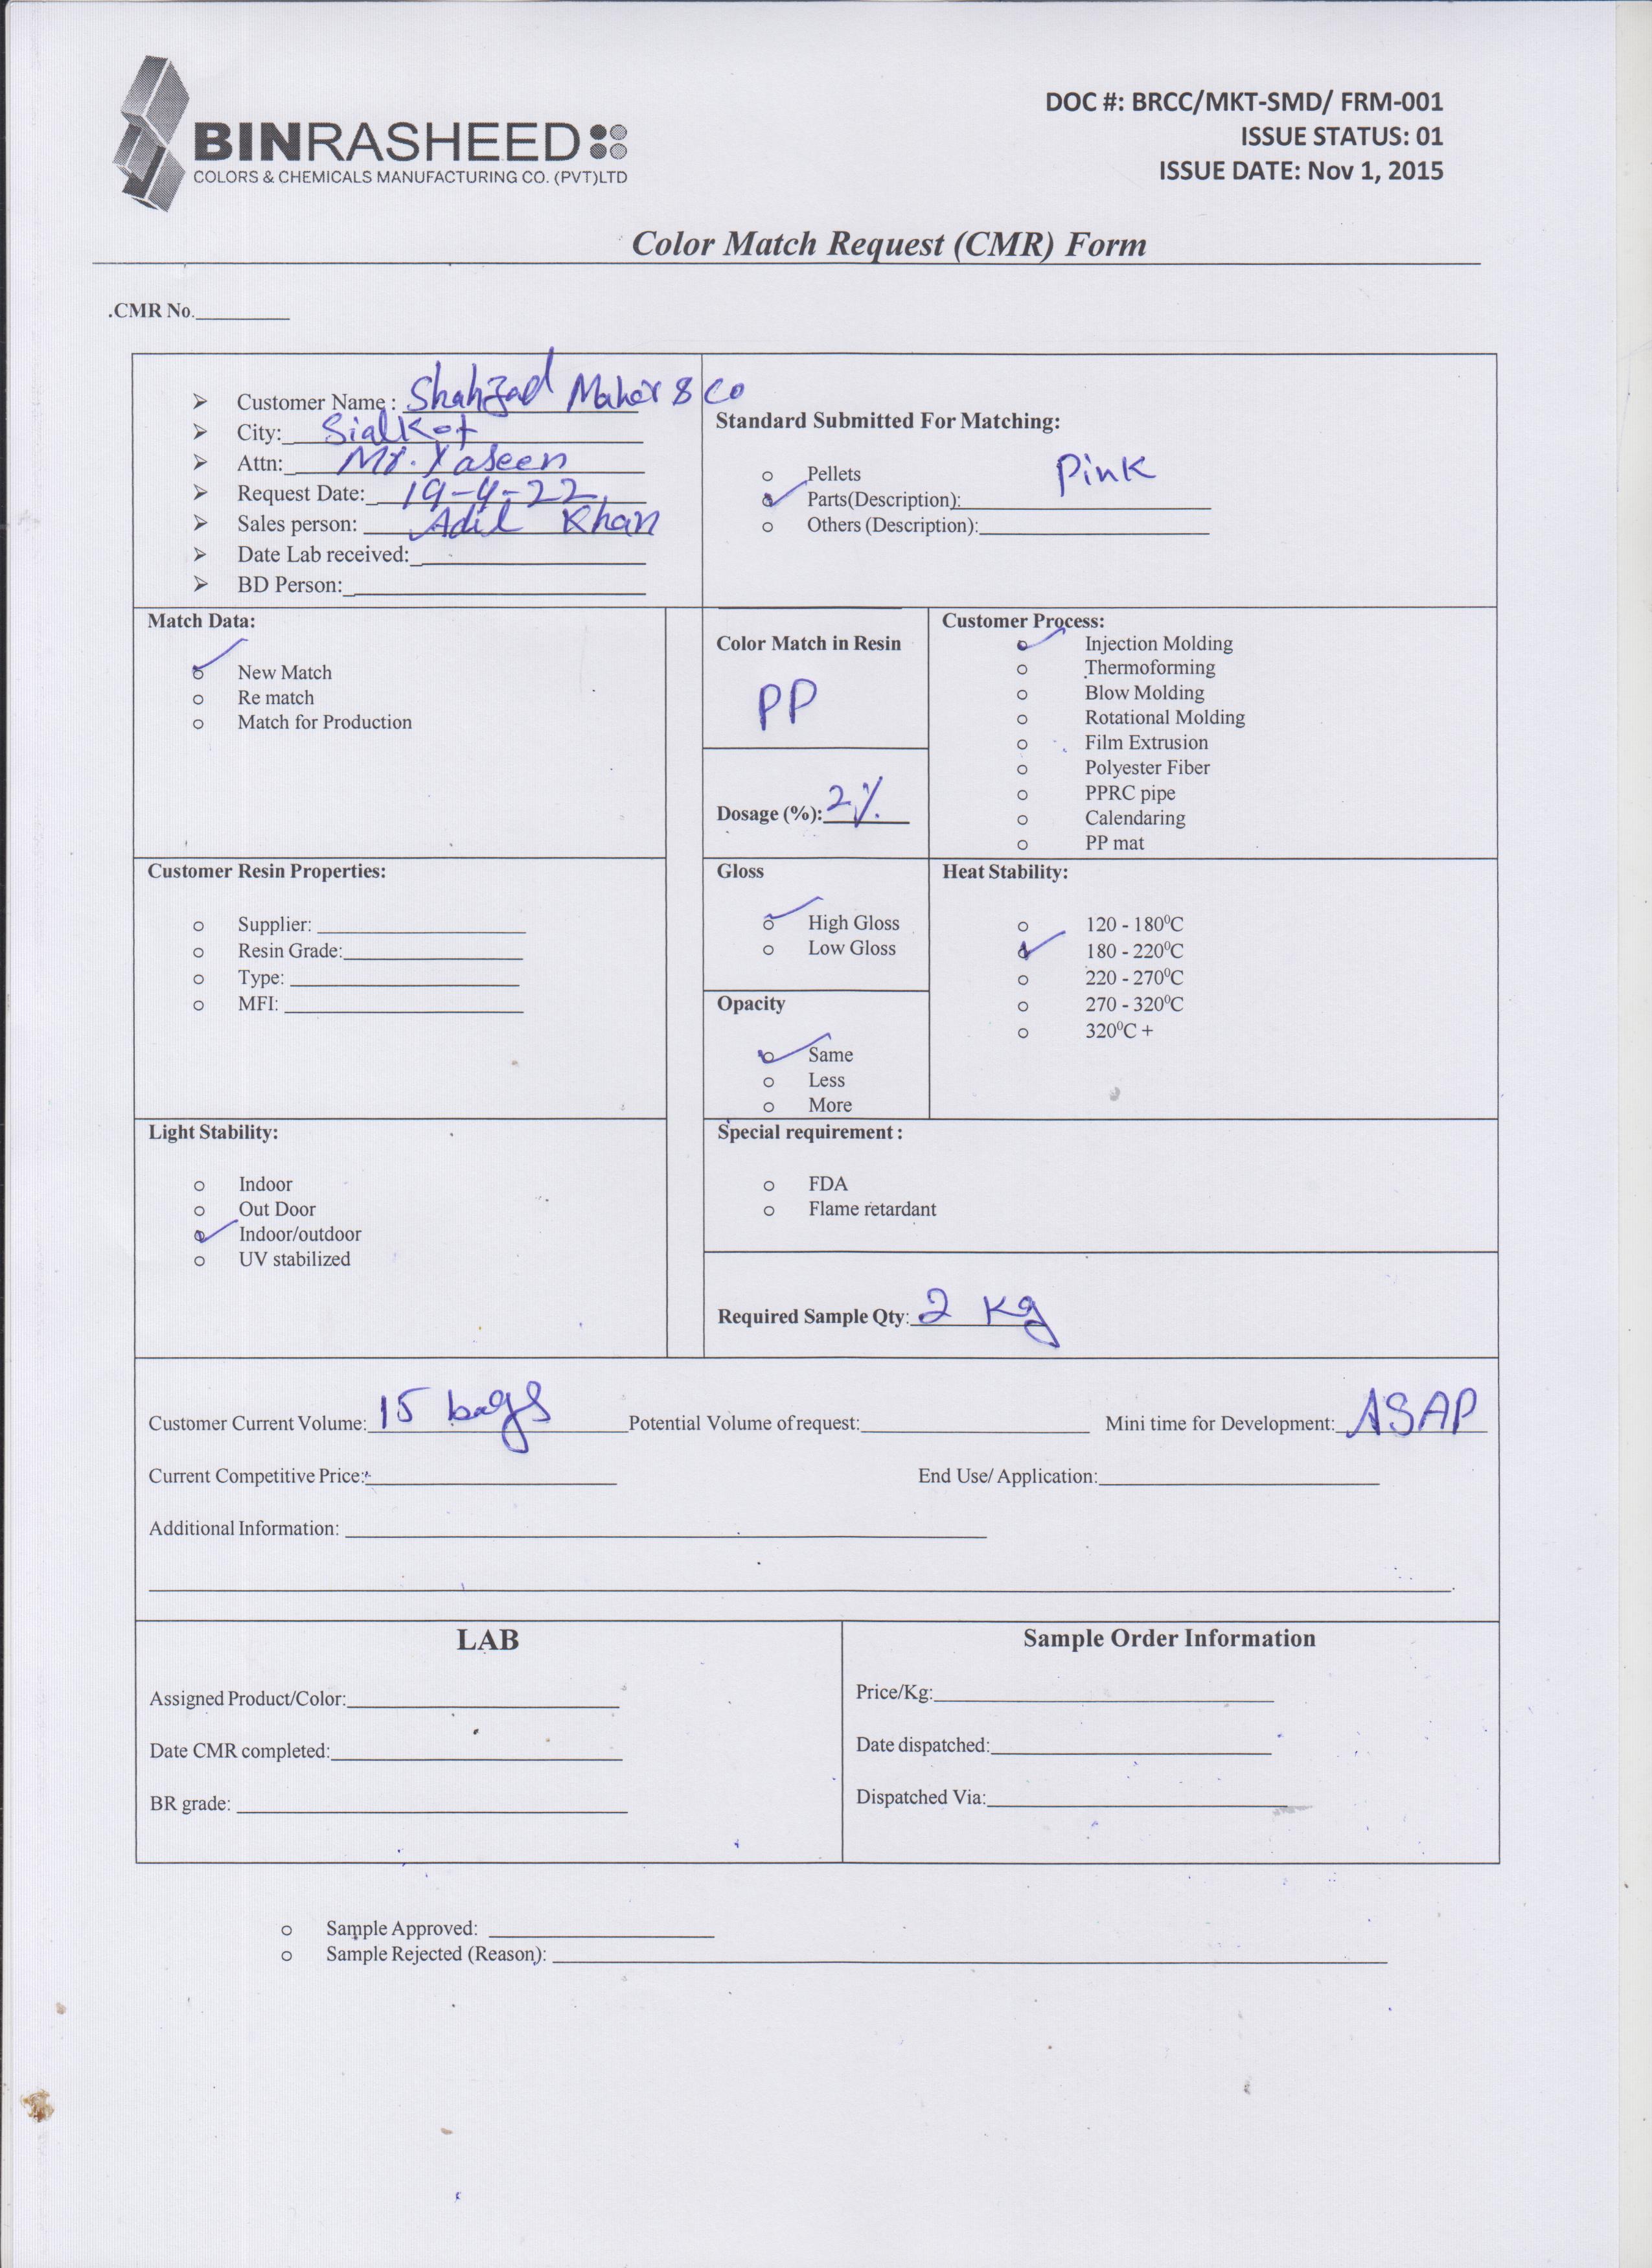 BINRASHEED
COLORS & CHEMICALS MANUFACTURING CO. (PVT)LTD
DOC #: BRCC/MKT-SMD/ FRM-001
ISSUE STATUS: 01
ISSUE DATE: Nov 1, 2015
Color Match Request (CMR) Form
.CMR No.
Customer Name : Shahzad Maher & Co
City: Sialkot
Attn: Mr. Yaseen
Request Date: 19-4-22
Sales person: Adil Khan
Date Lab received:
BD Person:
Standard Submitted For Matching:
Pellets
Parts(Description): Pink
Others (Description):
Match Data:
New Match
Re match
Match for Production
Color Match in Resin
PP
Dosage (%): 2%
Customer Process:
Injection Molding
Thermoforming
Blow Molding
Rotational Molding
Film Extrusion
Polyester Fiber
PPRC pipe
Calendaring
PP mat
Customer Resin Properties:
Supplier:
Resin Grade:
Type:
MFI:
Gloss
High Gloss
Low Gloss
Opacity
Same
Less
More
Heat Stability:
120 - 180⁰C
180 - 220⁰C
220 - 270⁰C
270 - 320⁰C
320⁰C +
Light Stability:
Indoor
Out Door
Indoor/outdoor
UV stabilized
Special requirement :
FDA
Flame retardant
Required Sample Qty: 2 Kg
Customer Current Volume: 15 bags Potential Volume of request: Mini time for Development: ASAP
Current Competitive Price: End Use/ Application:
Additional Information:
LAB
Assigned Product/Color:
Date CMR completed:
BR grade:
Sample Order Information
Price/Kg:
Date dispatched:
Dispatched Via:
Sample Approved:
Sample Rejected (Reason):